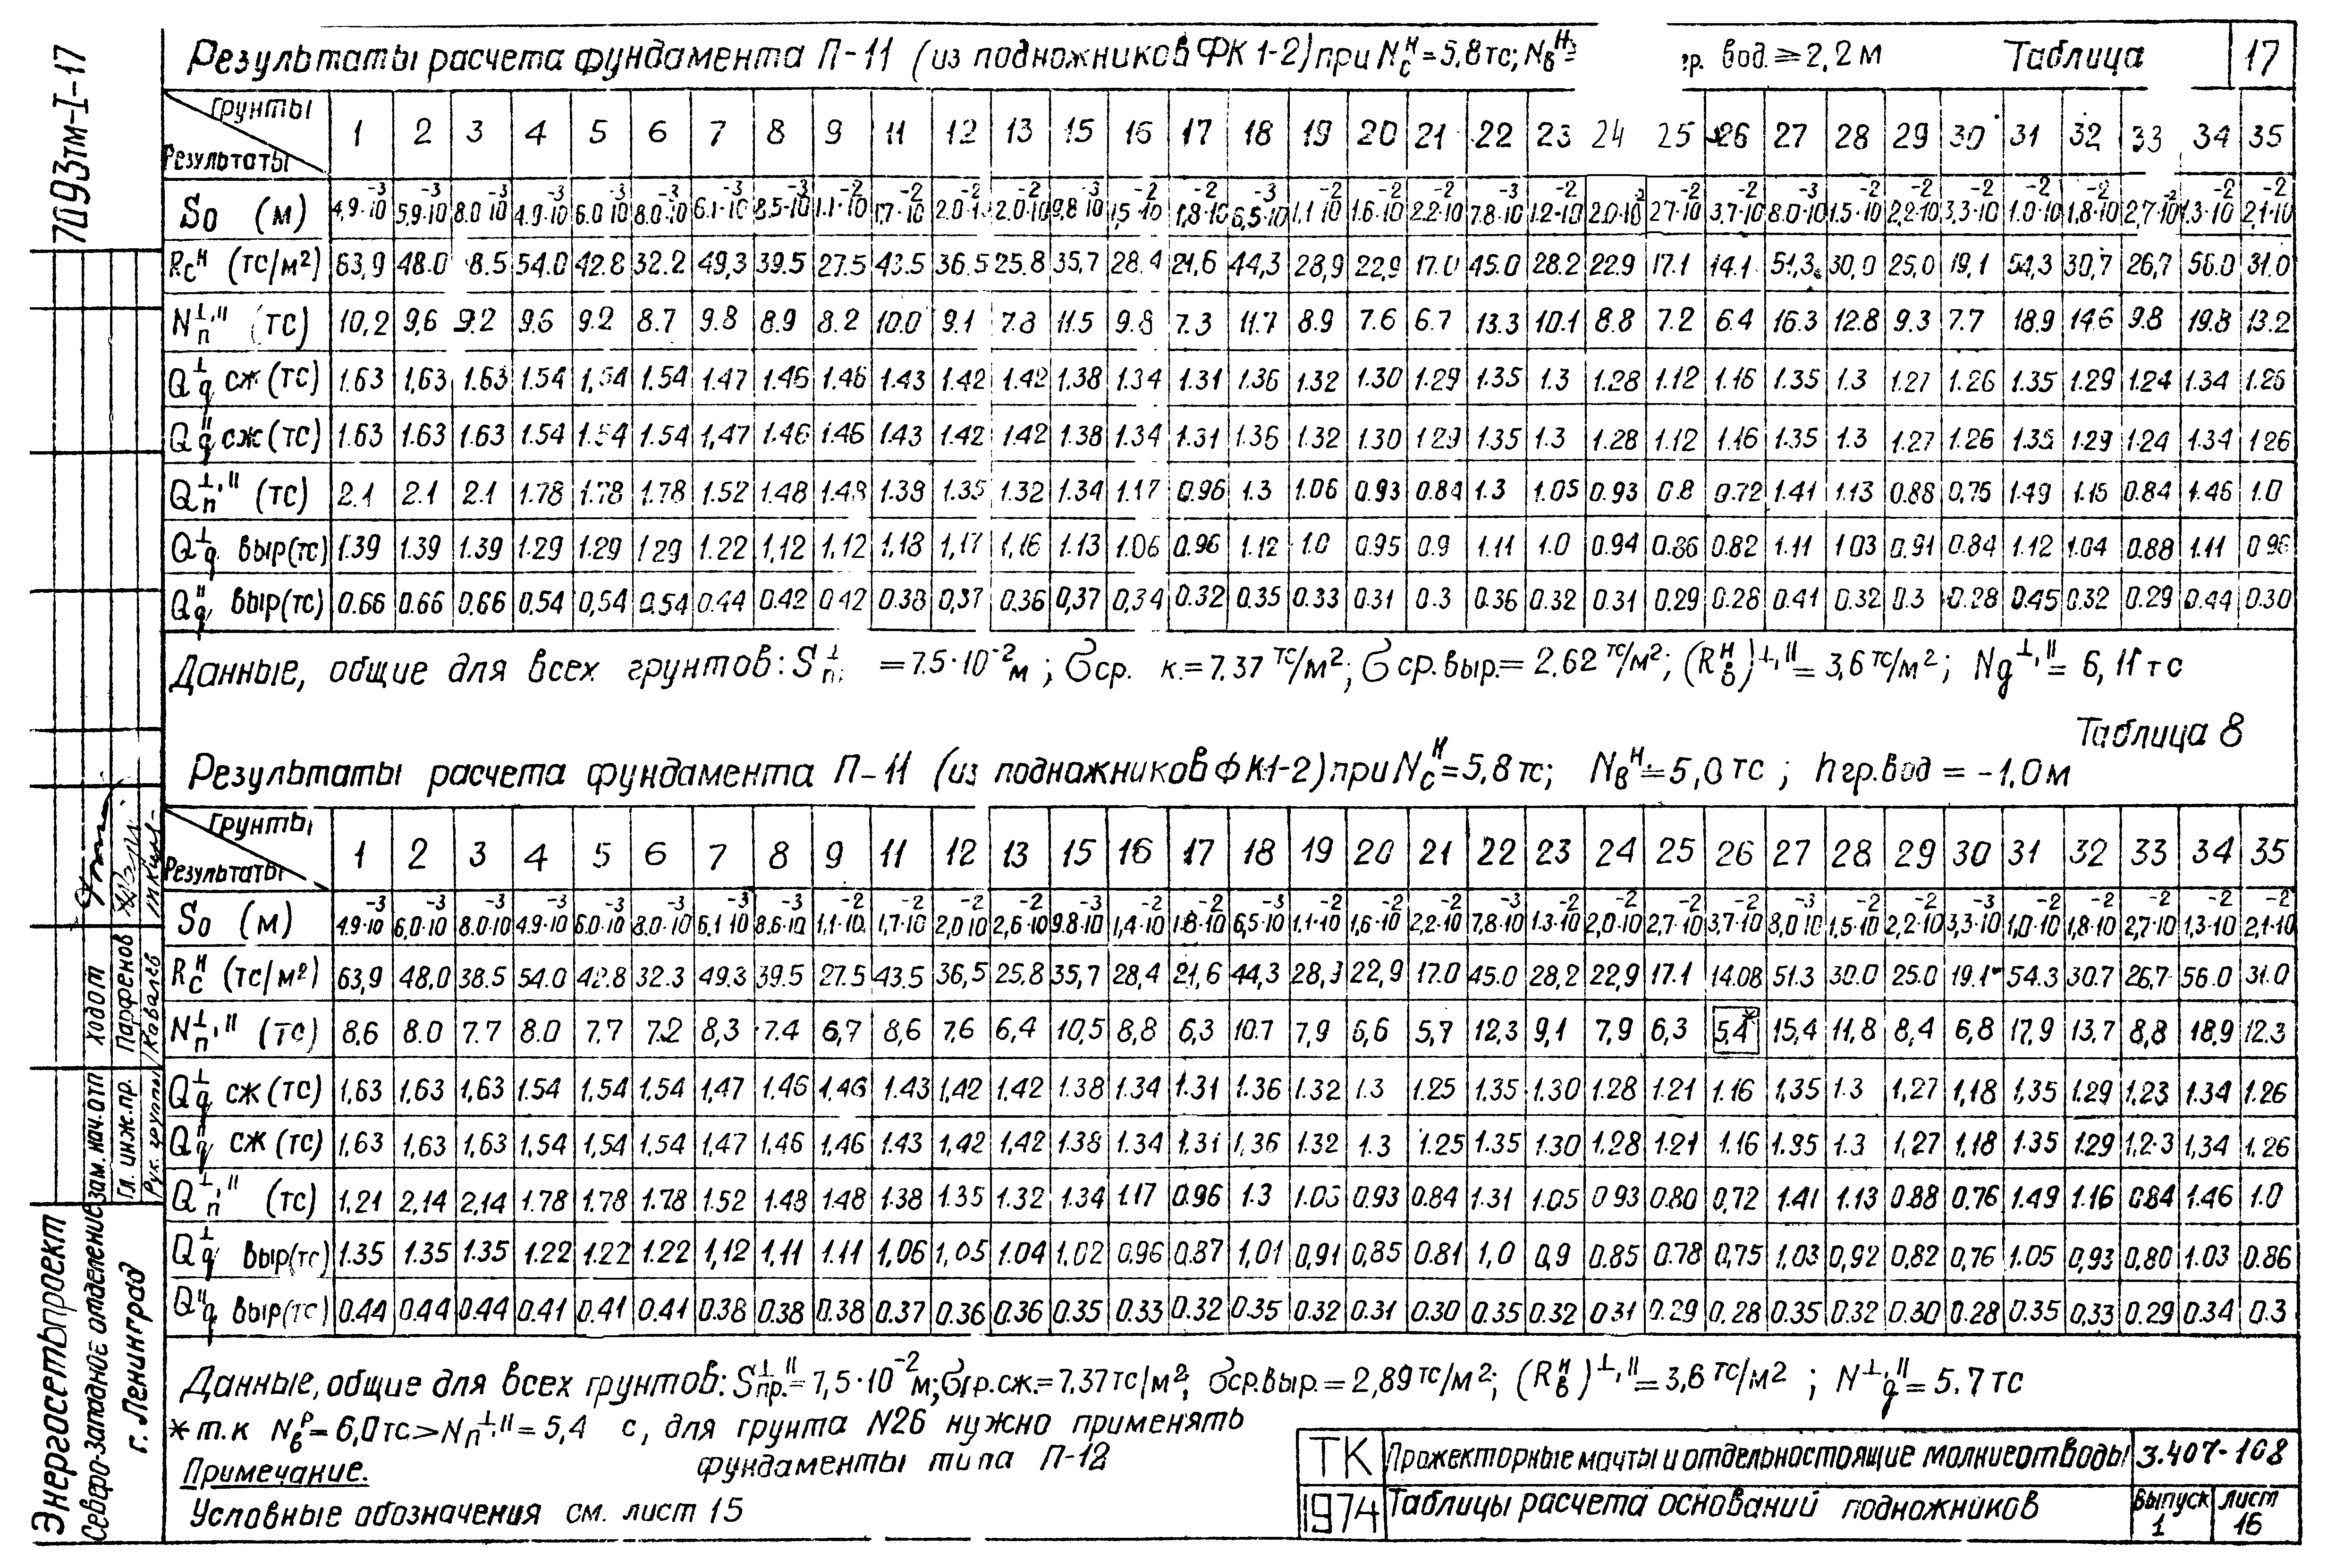 7093тм-I-17
Результаты расчета фундамента П-11 (из подножников ФК 1-2) при Nсᴴ=5,8тс; Nвᴴ= гр. вод.≥2,2м Таблица 17
Грунты 1 2 3 4 5 6 7 8 9 11 12 13 15 16 17 18 19 20 21 22 23 24 25 26 27 28 29 30 31 32 33 34 35
Результаты
S₀ (м) 4,9·10⁻³ 5,9·10⁻³ 8.0·10⁻³ 4.9·10⁻³ 6.0·10⁻³ 8.0·10⁻³ 6.1·10⁻³ 8.5·10⁻³ 1.1·10⁻² 1.7·10⁻² 2.0·10⁻² 2.0·10⁻² 9.8·10⁻³ 1,5·10⁻² 1,8·10⁻² 6,5·10⁻³ 1.1·10⁻² 1.6·10⁻² 2.2·10⁻² 7.8·10⁻³ 1.2·10⁻² 2.0·10⁻² 2.7·10⁻² 3,7·10⁻² 8.0·10⁻³ 1.5·10⁻² 2,2·10⁻² 3,3·10⁻² 1.0·10⁻² 1,8·10⁻² 2,7·10⁻² 1.3·10⁻² 2,1·10⁻²
Rсᴴ (тс/м²) 63,9 48.0 8.5 54.0 42.8 32.2 49,3 39.5 27.5 43.5 36.5 25.8 35,7 28.4 21,6 44,3 28,9 22,9 17.0 45.0 28.2 22.9 17.1 14.1 51,3 30,0 25,0 19,1 54,3 30,7 26,7 56.0 31.0
Nп⊥,|| (тс) 10,2 9,6 9.2 9.6 9.2 8.7 9.8 8.9 8.2 10.0 9.1 7.8 11.5 9.8 7.3 11.7 8.9 7.6 6.7 13.3 10.1 8.8 7.2 6.4 16.3 12.8 9.3 7.7 18.9 14.6 9.8 19.8 13.2
Qg⊥ сж(тс) 1.63 1,63 1.63 1.54 1,54 1.54 1.47 1.46 1.46 1.43 1.42 1.42 1.38 1.34 1.31 1.36 1.32 1.30 1.29 1.35 1.3 1.28 1.12 1.16 1.35 1.3 1.27 1.26 1.35 1.29 1.24 1.34 1.26
Qg|| сж(тс) 1.63 1.63 1.63 1.54 1.54 1.54 1,47 1.46 1.46 1.43 1.42 1.42 1.38 1.34 1.31 1.36 1.32 1.30 1 29 1.35 1.3 1.28 1.12 1.16 1.35 1.3 1.27 1.26 1.35 1.29 1.24 1.34 1 26
Qп⊥,|| (тс) 2.1 2.1 2.1 1.78 1.78 1.78 1.52 1.48 1.48 1.38 1.35 1.32 1.34 1.17 0.96 1.3 1.06 0.93 0.84 1.3 1.05 0.93 0.8 0.72 1.41 1.13 0.88 0,75 1.49 1.15 0.84 1.46 1.0
Qg⊥ выр(тс) 1.39 1.39 1.39 1.29 1.29 1 29 1.22 1,12 1,12 1,18 1,17 1,16 1.13 1.06 0.96 1.12 1.0 0.95 0.9 1.11 1.0 0.94 0.86 0.82 1.11 1 03 0.91 0.84 1.12 1.04 0.88 1.11 0 96
Qg|| выр(тс) 0.66 0.66 0.66 0,54 0,54 0,54 0.44 0.42 0 42 0.38 0,37 0.36 0,37 0,34 0.32 0.35 0.33 0.31 0.3 0.36 0.32 0.31 0.29 0.28 0.41 0.32 0.3 0.28 0.45 0.32 0.29 0.44 0.30
Данные, общие для всех грунтов: Sп⊥ =7.5·10⁻²м; σср. к.=7,37 тс/м²; σср.выр.=2,62 тс/м²; (Rвᴴ)⊥,||=3,6 тс/м²; Ng⊥,||=6,11тс
Таблица 8
Результаты расчета фундамента П-11 (из подножников ФК1-2) при Nсᴴ=5,8тс; Nвᴴ=5,0тс; hгр.вод=-1,0м
Грунты 1 2 3 4 5 6 7 8 9 11 12 13 15 16 17 18 19 20 21 22 23 24 25 26 27 28 29 30 31 32 33 34 35
Результаты
S₀ (м) 4.9·10⁻³ 6,0·10⁻³ 8.0·10⁻³ 4.9·10⁻³ 6.0·10⁻³ 8.0·10⁻³ 6.1·10⁻³ 8.6·10⁻³ 1,1·10⁻² 1,7·10⁻² 2,0·10⁻² 2,6·10⁻² 9.8·10⁻³ 1,4·10⁻² 1.8·10⁻² 6,5·10⁻³ 1.1·10⁻² 1,6·10⁻² 2,2·10⁻² 7,8·10⁻³ 1.3·10⁻² 2,0·10⁻² 2.7·10⁻² 3,7·10⁻² 8,0·10⁻³ 1,5·10⁻² 2,2·10⁻² 3,3·10⁻² 1,0·10⁻² 1,8·10⁻² 2,7·10⁻² 1,3·10⁻² 2,1·10⁻²
Rсᴴ (тс/м²) 63,9 48,0 38.5 54.0 42.8 32.3 49.3 39.5 27.5 43.5 36,5 25.8 35,7 28,4 21,6 44,3 28,9 22,9 17.0 45.0 28,2 22,9 17.1 14.08 51.3 30.0 25.0 19.1 54.3 30.7 26,7 56.0 31.0
Nп⊥,|| (тс) 8,6 8.0 7.7 8.0 7.7 7.2 8,3 7.4 6,7 8,6 7,6 6,4 10,5 8,8 6,3 10.7 7,9 6,6 5,7 12,3 9,1 7,9 6,3 5,4* 15,4 11,8 8,4 6,8 17,9 13,7 8,8 18,9 12.3
Qg⊥ сж(тс) 1,63 1,63 1,63 1.54 1,54 1,54 1,47 1.46 1,46 1.43 1,42 1.42 1.38 1.34 1.31 1.36 1.32 1.3 1.25 1,35 1.30 1.28 1.21 1.16 1,35 1.3 1,27 1,18 1,35 1.29 1,23 1.34 1.26
Qg|| сж(тс) 1,63 1,63 1,63 1,54 1,54 1,54 1.47 1,46 1,46 1.43 1,42 1,42 1.38 1.34 1,31 1,36 1.32 1.3 1.25 1.35 1.30 1.28 1.21 1.16 1.35 1.3 1,27 1,18 1.35 1.29 1,23 1,34 1,26
Qп⊥,|| (тс) 1,21 2,14 2,14 1.78 1.78 1.78 1.52 1.48 1.48 1.38 1.35 1.32 1.34 1.17 0.96 1.3 1.05 0.93 0.84 1.31 1.05 0 93 0.80 0,72 1.41 1.13 0.88 0.76 1.49 1.16 0.84 1.46 1.0
Qg⊥ выр(тс) 1.35 1.35 1.35 1.22 1.22 1.22 1,12 1,11 1.11 1,06 1,05 1.04 1,02 0,96 0,87 1,01 0,91 0,85 0.81 1,0 0,9 0.85 0.78 0,75 1.03 0,92 0.82 0,76 1.05 0,93 0,80 1.03 0.86
Qg|| выр(тс) 0.44 0.44 0.44 0.41 0.41 0.41 0.38 0.38 0.38 0.37 0.36 0.36 0.35 0.33 0.32 0.35 0.32 0.31 0.30 0.35 0.32 0.31 0.29 0.28 0.35 0.32 0.30 0.28 0.35 0,33 0.29 0.34 0.3
Данные, общие для всех грунтов: Sпр.⊥,||=7,5·10⁻²м; σгр.сж.=7.37тс/м²; σср.выр.=2,89тс/м²; (Rвᴴ)⊥,||=3,6тс/м²; Ng⊥,||=5.7тс
* т.к Nвᴾ=6,0тс>Nп⊥,||=5,4 с, для грунта N26 нужно применять
фундаменты типа П-12
Примечание.
Условные обозначения см. лист 15
ТК Прожекторные мачты и отдельностоящие молниеотводы 3.407-108
1974 Таблицы расчета оснований подножников Выпуск 1 Лист 16
Энергосетьпроект
Северо-западное отделение
г. Ленинград
Зам. нач. отп Ходот
Гл. инж. пр. Парфенов
Рук. группы Ковалев